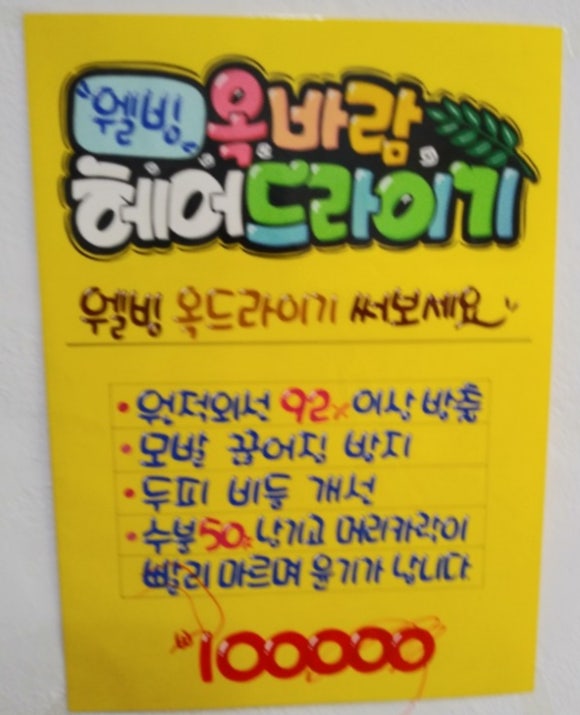 웰빙 옥바람
헤어드라이기
웰빙 옥드라이기 써보세요
• 원적외선 92% 이상 방출
• 모발 끊어짐 방지
• 두피 비듬 개선
• 수분 50% 남기고 머리카락이
빨리 마르며 윤기가 납니다.
₩100000